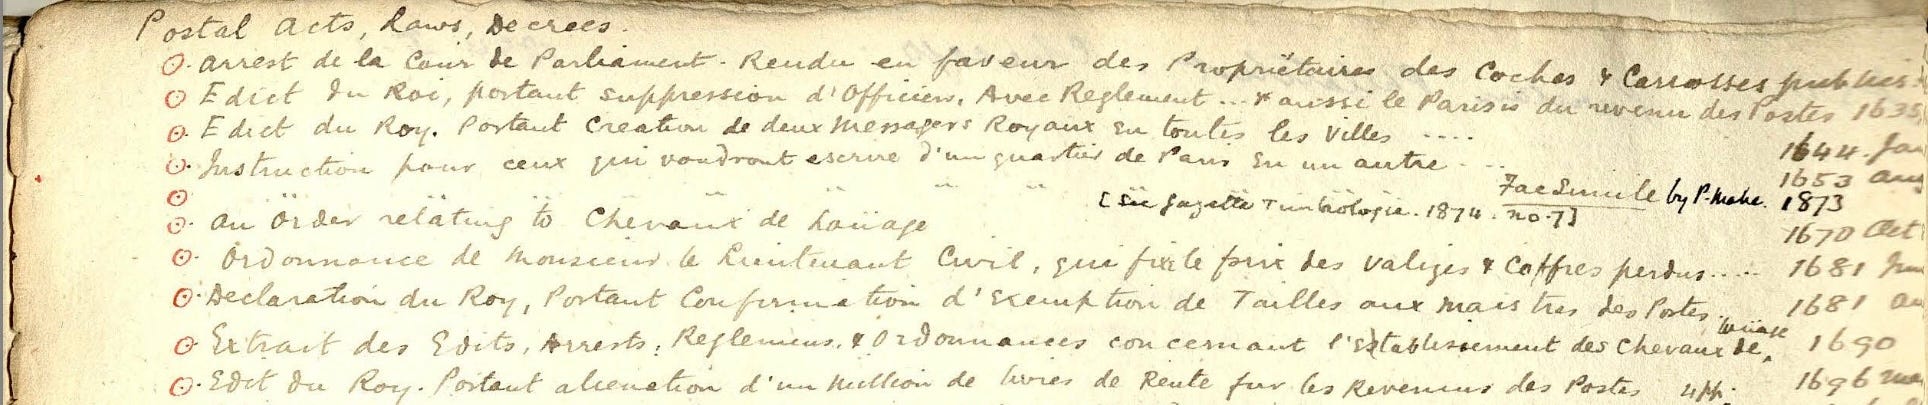 Postal Acts, Laws, Decrees.
Arrest de la Cour de Parliament. Rendu en faveur des Propriëtaires des Coches & Carrosses publics
Edict du Roi, portant suppression d'Officiers. Avec Reglement ... & aussi le Parisis du revenu des Postes 1635
Edict du Roy. Portant Creation de deux Messagers Royaux en toutes les Villes .... 1644. Jan
Instruction pour ceux qui voudront escrire d'un quartier de Paris en un autre ... 1653 aug
" " " " " Fac Simile by P. Mahé. 1873
[See Gazette Timbrologie. 1874. no. 7]
An Order relating to Chevaux de Louage 1670 Oct
Ordonnance de Monsieur le Lieutenant Civil, qui fixe le prix des Valizes & Coffres perdus ..... 1681 Jun
Declaration du Roy, Portant Confirmation d'Exemption de Tailles aux Maistres des Postes. 1681 au
Extrait des Edits, Arrests, Reglemens, & Ordonnances concernant l'Establissement des Chevaux de louage 1690
Edit du Roy. Portant alienation d'un Million de livres de Rente sur les Revenus des Postes 4pp. 1696